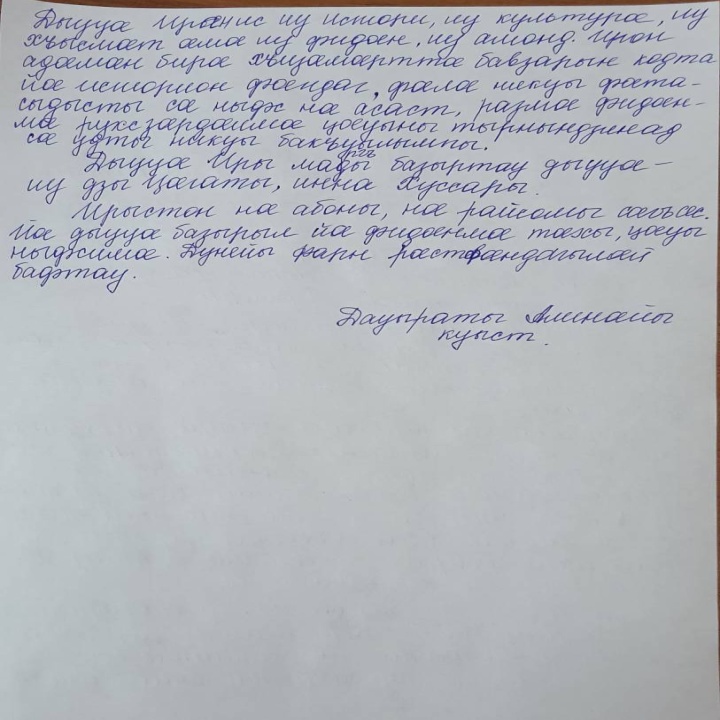 Дыууæ Ирæн ис иу истори, иу культурæ, иу
хъысмæт æмæ иу фидæн, иу амонд. Ирон
адæмæн бирæ хъизæмæрттæ бавзарын кодта
йæ историон фæндаг, фæлæ никуы фæта-
сыдысты сæ ныфс нæ асаст, размæ фидæн-
мæ рухсзæрдæимæ цæуыны тырнындзинад
сæ удты никуы бакъуылымпы.
Дыууæ Иры мады базыртау дыууæ –
иу дзы Цæгаты, иннæ Хуссары.
Ирыстон нæ абоны, нæ райсомы æгъæс.
Йæ дыууæ базырыл йæ фидæнмæ тæхы, цæуы
ныфсимæ. Дунейы фарн растфæндагылæй
бафтау.
Дауыраты Аминайы
куыст.